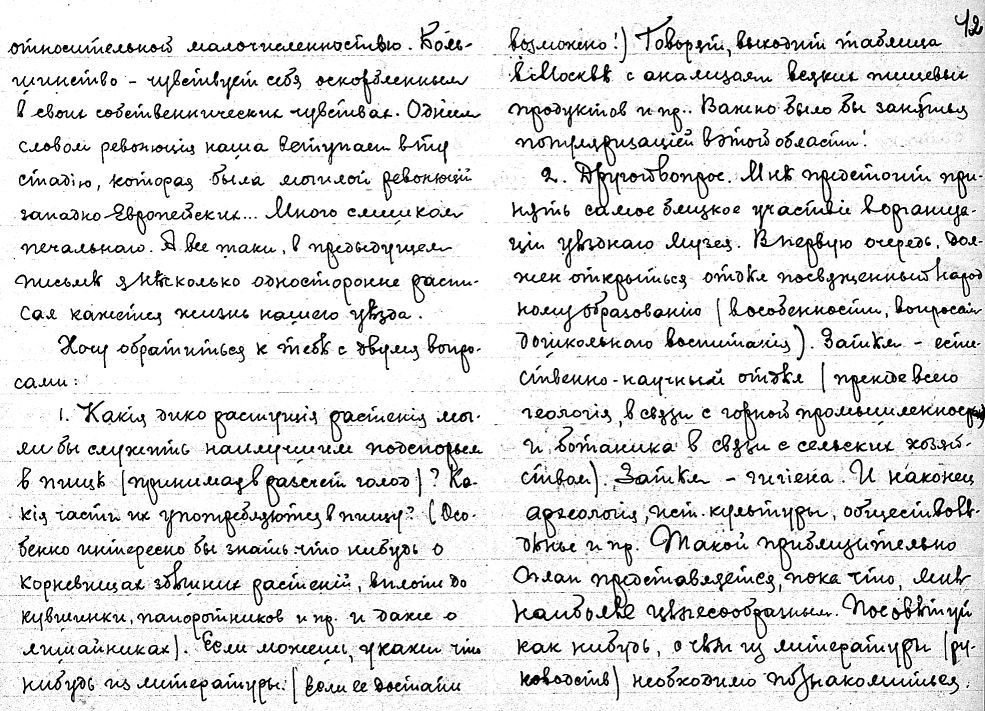 относительной малочисленностью. Боль-
шинство – чувствует себя оскорбленным
в своих собственнических чувствах. Одним
словом революція наша вступает в ту
стадію, которая была могилой революцій
западно-Европейских... Много слишком
печальнаго. А все таки, в предыдущем
письмѣ я нѣсколько односторонне распи-
сал кажется жизнь нашего уѣзда.
Хочу обратиться к тебѣ с двумя вопро-
сами:
1. Какія дико растущія растенія мог-
ли бы служить наилучшим подспорьем
в пищѣ (принимая в разсчет голод)? Ка-
кія части их употребляются в пищу? (Осо-
бенно интересно бы знать что нибудь о
корневищах здѣшних растеній, вплоть до
кувшинки, папоротников и пр. и даже о
лишайниках). Если можешь, укажи что
нибудь из литературы. (Если ее достать
42
возможно!) Говорят, выходит таблица
в Москвѣ с анализами всяких пищевых
продуктов и пр.. Важно было бы заняться
популяризаціей в этой области!
2. Другой вопрос. Мнѣ предстоит при-
нять самое близкое участіе в организа-
ціи уѣзднаго музея. В первую очередь, дол-
жен открыться отдѣл посвященный народ
ному образованію (в особенности, вопросам
дошкольнаго воспитанія). Затѣм – есте-
ственно-научный отдѣл (прежде всего
геологія, в связи с горной промышленностью
и ботаника в связи с сельским хозяй-
ством). Затѣм – гигіена. И наконец
археологія, ист. культуры, обществовѣ-
дѣнье и пр. Такой приблизительно
план представляется, пока что, мнѣ
наиболѣе цѣлесообразным. Посовѣтуй
как нибудь, с чѣм из литературы (ру-
ководств) необходимо познакомиться.